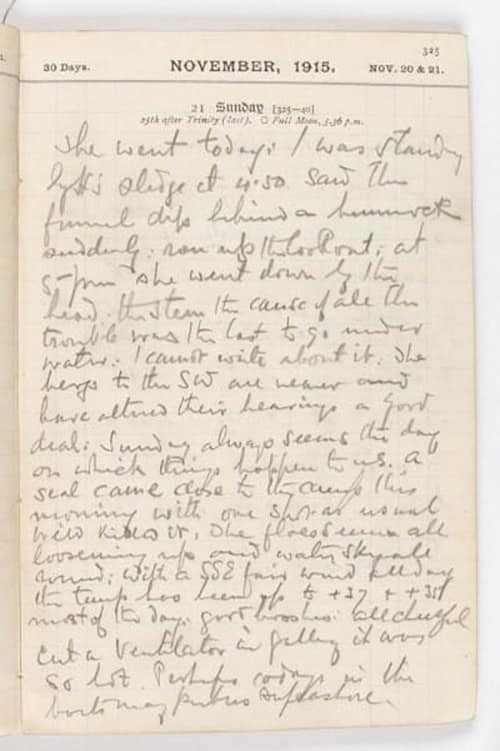 325
30 Days.
NOVEMBER, 1915.
NOV. 20 & 21.
21 Sunday [325—40]
25th after Trinity (last). ○ Full Moon, 5.36 p.m.
She went today: I was standing
by H's sledge at 4.50 saw the
funnel dip behind a hummock
suddenly: ran up the lookout; at
5-pm she went down by the
head: the stern the cause of all the
trouble was the last to go under
water: I cannot write about it: The
bergs to the SW are nearer and
have altered their bearings a good
deal: Sunday always seems the day
on which things happen to us. a
seal came close to the camp this
morning with one shot as usual
Wild killed it, The floes seem all
loosening up and water sky all
round: with a SSE fair wind all day
the temp has been up to +37 +
most of the day: all cheerful
cut a ventilator in galley it was
so hot. Perhaps in the
boats may